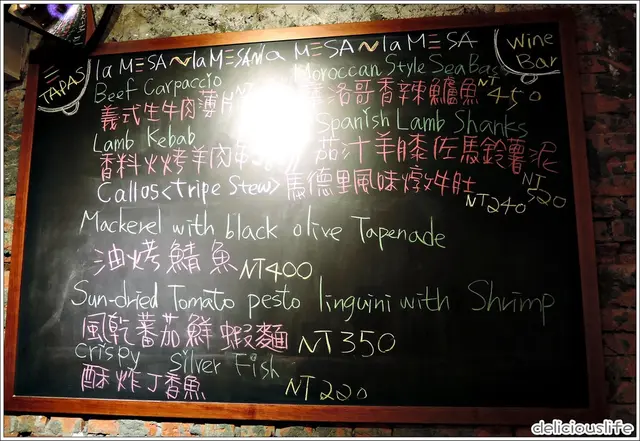 la MESA la MESA la MESA la MESA
TAPAS
Wine Bar
Beef Carpaccio
義式生牛肉薄片
Moroccan Style Sea Bass
洛哥香辣鱸魚 NT 450
Lamb Kebab
香料火烤羊肉串
Spanish Lamb Shanks
茄汁羊膝佐馬鈴薯泥 NT 520
Callos <tripe Stew> 馬德里風味燉牛肚 NT 240
Mackerel with black olive Tapenade
油烤鯖魚 NT400
Sun-dried Tomato pesto linguini with Shrimp
風乾蕃茄鮮蝦麵 NT350
crispy Silver Fish
酥炸丁香魚 NT 220
deliciouslife